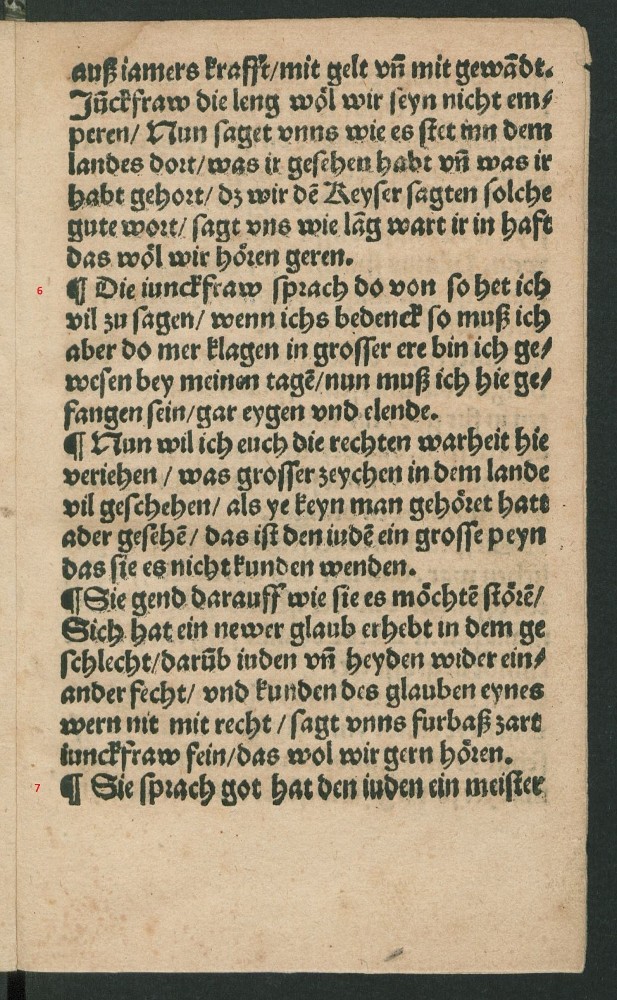 auß iamers krafft/mit gelt vñ mit gewãdt.
Jũckfraw die leng wöl wir seyn nicht em/
peren/ Nun saget vnns wie es stet inn dem
landes dort/was ir gesehen habt vñ was ir
habt gehort/ dz wir dẽ Keyser sagten solche
gute wort/ sagt vns wie lãg wart ir in haft
das wöl wir hören geren.
6 ¶ Die iunckfraw sprach do von so het ich
vil zu sagen/ wenn ichs bedenck so muß ich
aber do mer klagen in grosser ere bin ich ge/
wesen bey meinen tagẽ/nun muß ich hie ge/
fangen sein/gar eygen vnd elende.
¶ Nun wil ich euch die rechten warheit hie
veriehen / was grosser zeychen in dem lande
vil geschehen/ als ye keyn man gehöret hatt
ader gesehẽ/ das ist den iudẽ ein grosse peyn
das sie es nicht kunden wenden.
¶ Sie gend darauff wie sie es möchtẽ störẽ/
Sich hat ein newer glaub erhebt in dem ge
schlecht/darũb iuden vñ heyden wider ein/
ander fecht/ vnd kunden des glauben eynes
wern nit mit recht / sagt vnns furbaß zart
iunckfraw fein/das wol wir gern hören.
7 ¶ Sie sprach got hat den iuden ein meister